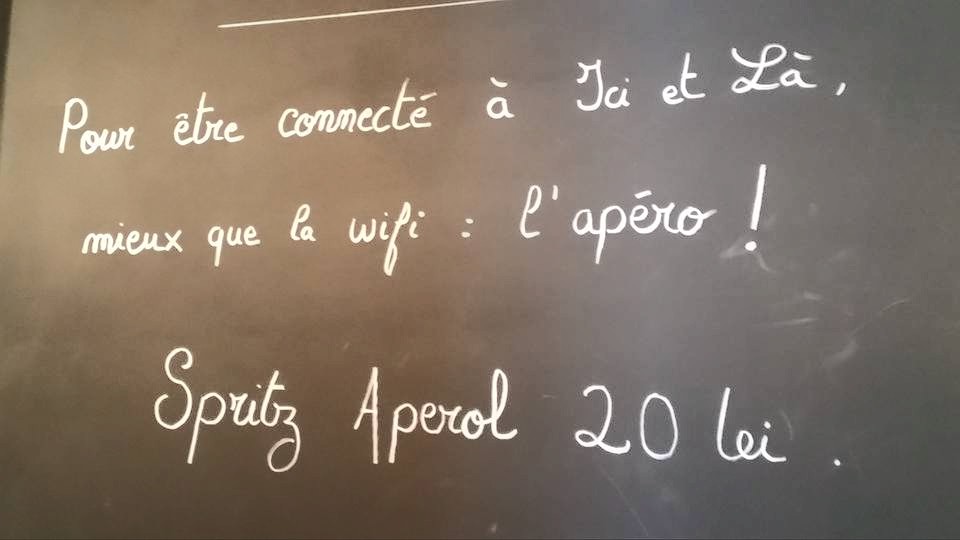 Pour être connecté à Ici et Là,
mieux que la wifi : l'apéro !
Spritz Aperol 20 lei.